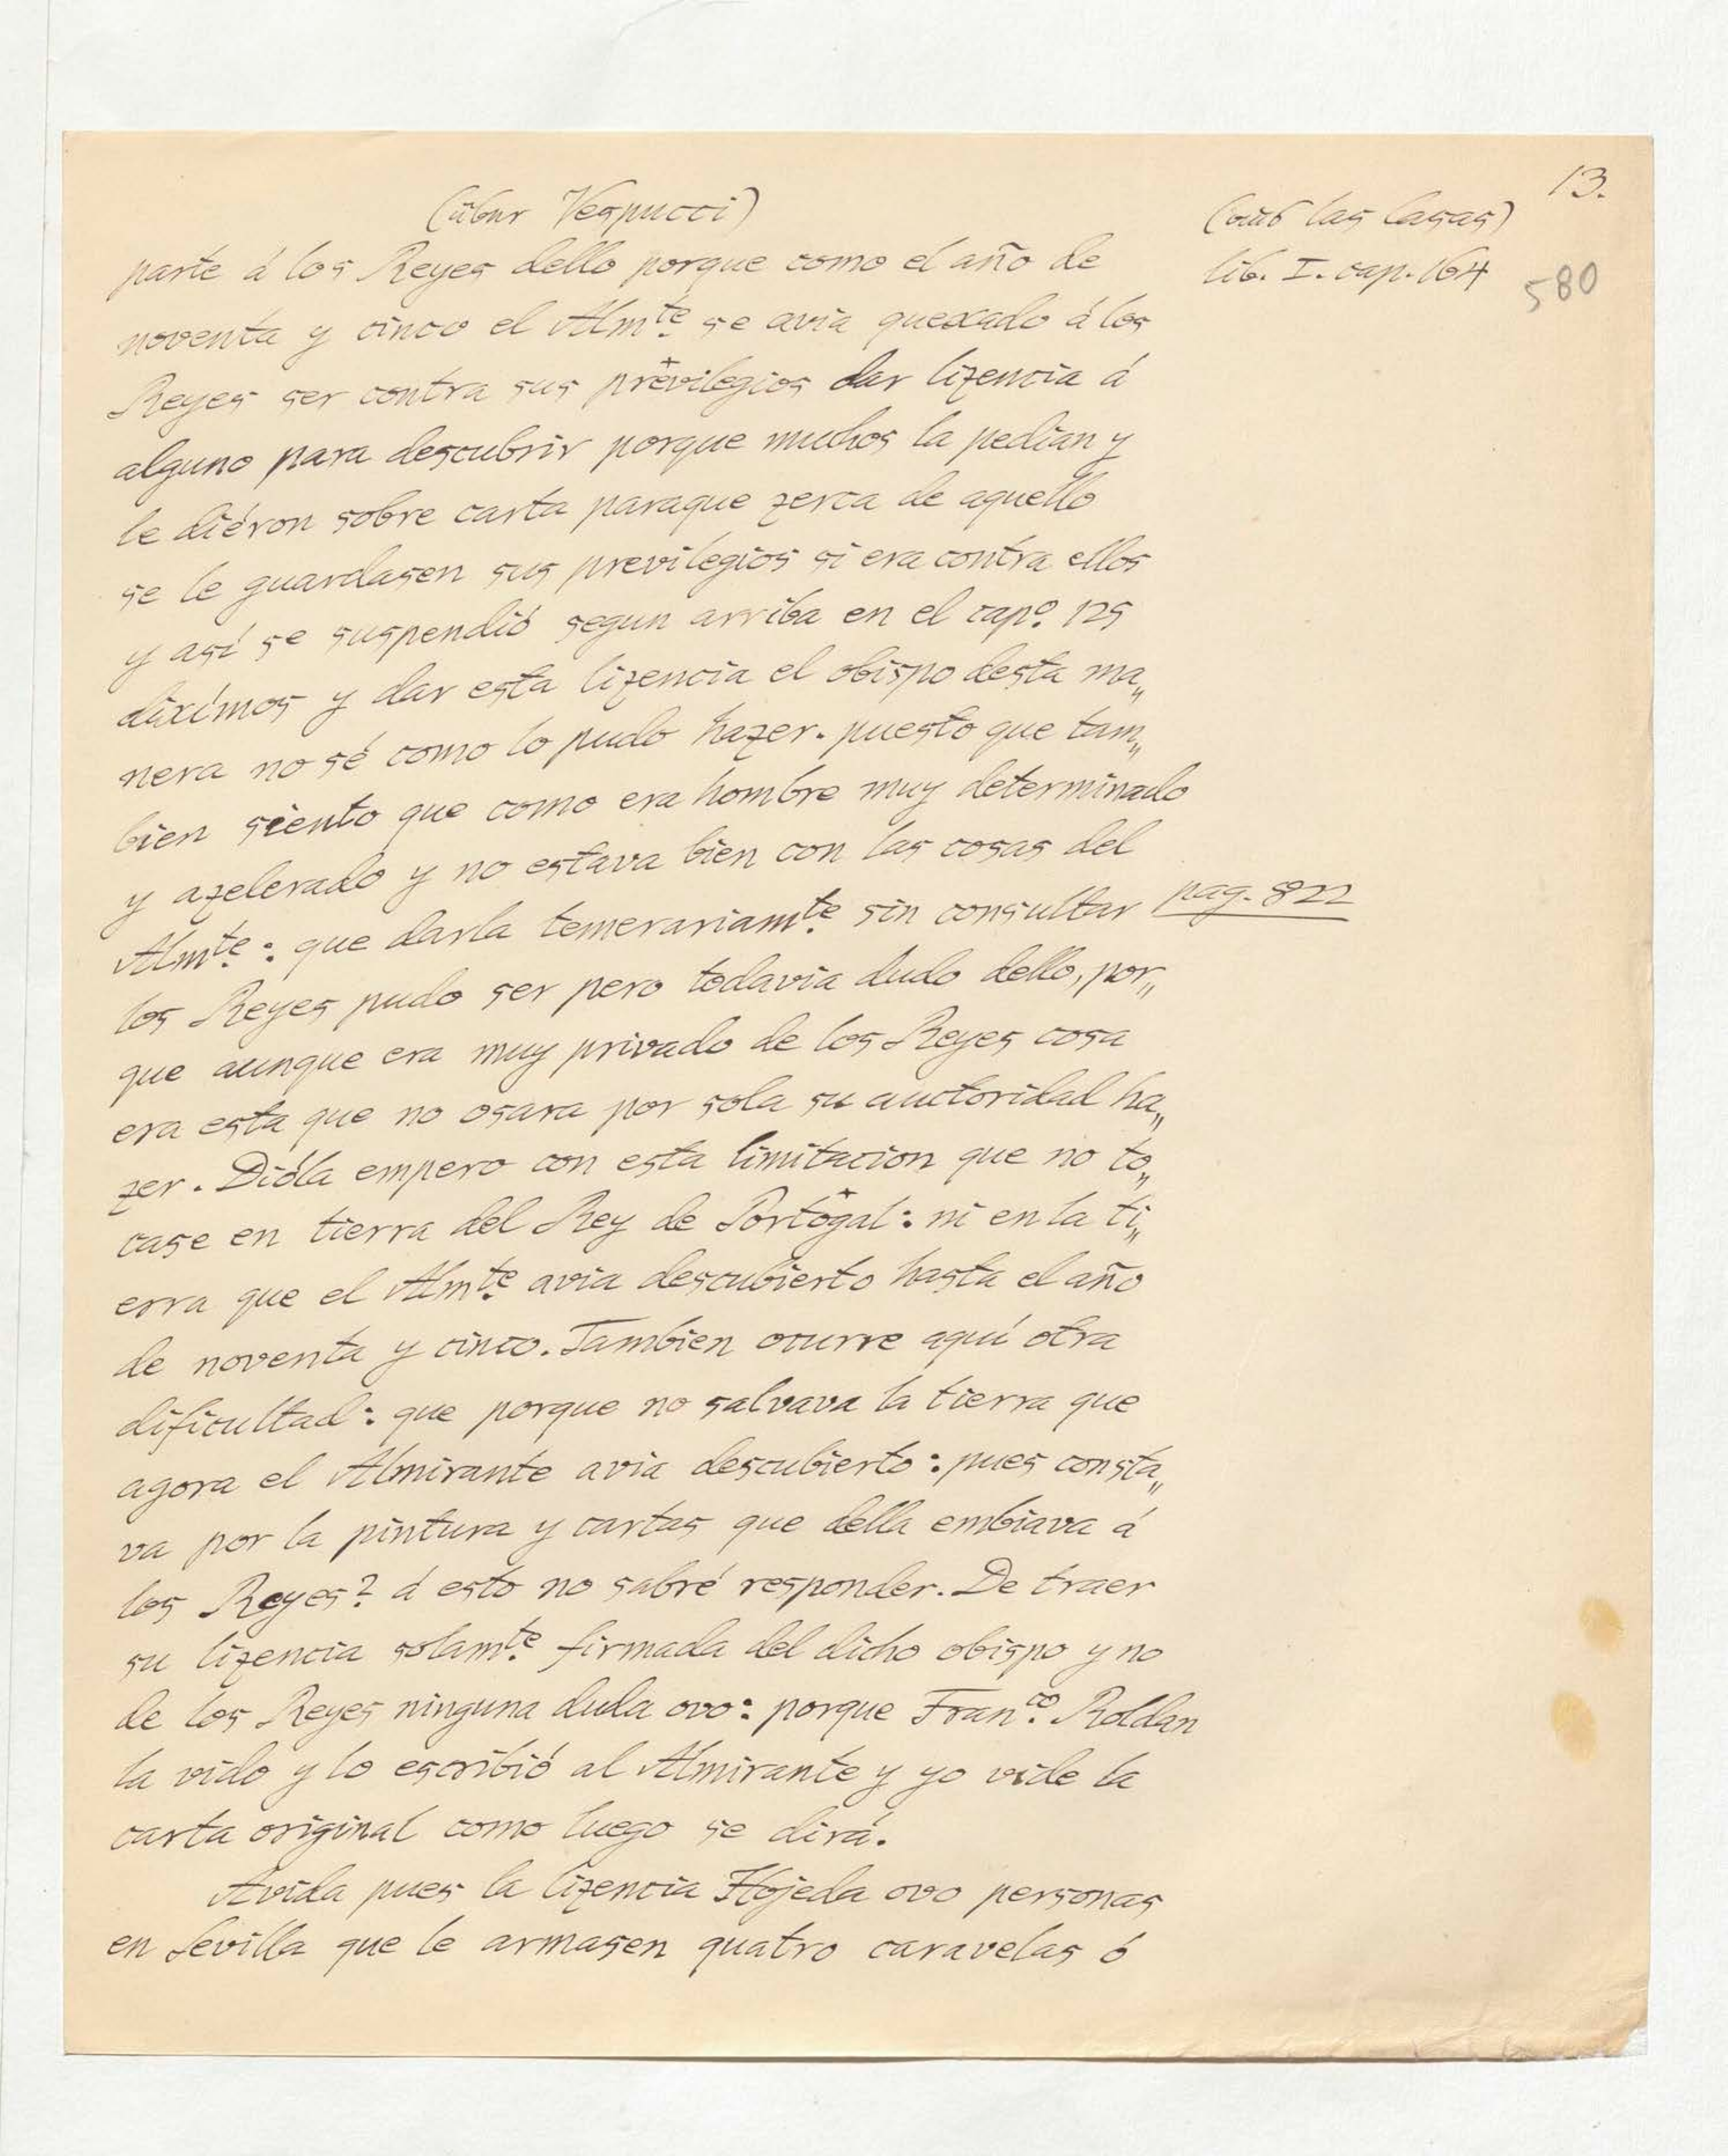 13.
(über Vespucci)
(aus las Casas)
lib. I. cap. 164
580
parte á los Reyes dello porque como el año de
noventa y cinco el Almte. se avia quexado á los
Reyes ser contra sus previlegios dar lizencia á
alguno para descubrir porque muchos la pedian y
le diéron sobre carta paraque zerca de aquello
se le guardasen sus previlegios si era contra ellos
y así se suspendió segun arriba en el capo. 125
diximos y dar esta lizencia el obispo desta ma„
nera no sé como lo pudo hazer. puesto que tam„
bien siento que como era hombre muy determinado
y azelerado y no estava bien con las cosas del
Almte.: que darla temerariamte. sin consultar pag. 822
los Reyes pudo ser pero todavia dudo dello, por„
que aunque era muy privado de los Reyes cosa
era esta que no osara por sola su auctoridad ha„
zer. Dióla empero con esta limitacion que no to„
case en tierra del Rey de Portogal: ni en la ti„
erra que el Almte. avia descubierto hasta el año
de noventa y cinco. Tambien ocurre aquí otra
dificultad: que porque no salvava la tierra que
agora el Almirante avia descubierto: pues consta„
va por la pintura y cartas que della embiava á
los Reyes? á esto no sabré responder. De traer
su lizencia solamte. firmada del dicho obispo y no
de los Reyes ninguna duda ovo: porque Franco. Roldan
la vido y lo escribió al Almirante y yo vide la
carta original como luego se dirá.
Avida pues la lizencia Hojeda ovo personas
en Sevilla que le armasen quatro caravelas ó